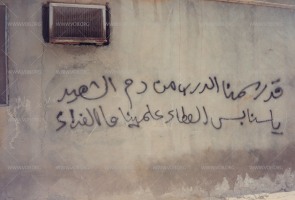 قد رسمنا الدرب من دم الشهيد
يا سنابس العطاء علمينا ما الفداء